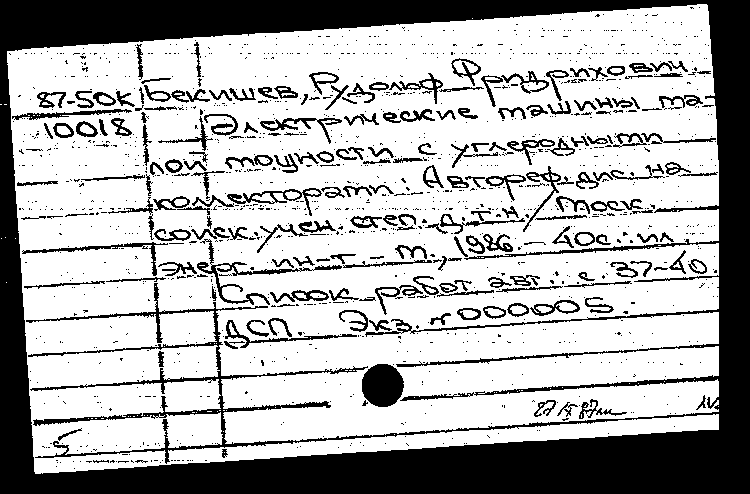 87-50к Бекишев, Рудольф Фридрихович.
10018 Электрические машины ма-
лой мощности с углеродными
коллекторами: Автореф. дис. на
соиск. учен. степ. д.т.н. / Моск.
энерг. ин-т - М., 1986. - 40с.: ил.
Список работ авт.: с. 37-40.
ДСП. Экз. N 000005.
5